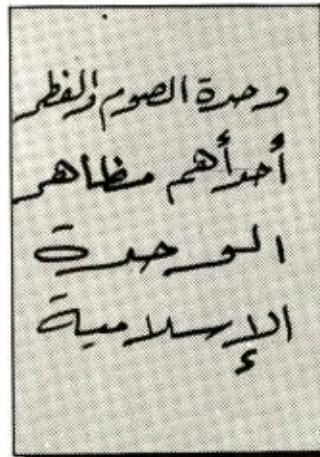 وحدة الصوم والفطر
أحد أهم مظاهر
الوحدة
الإسلامية